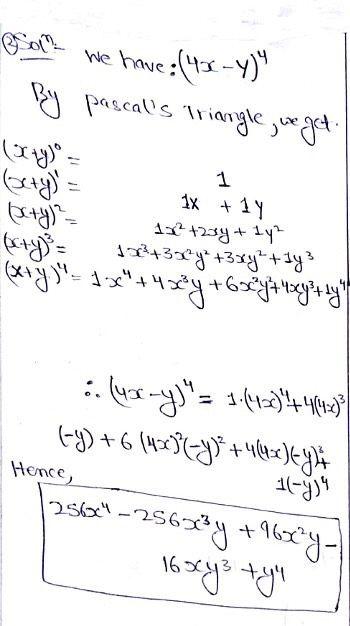 ② Solⁿ:- we have: (4x-y)⁴
By pascal's Triangle, we get.
(x+y)⁰ = 1
(x+y)¹ = 1x + 1y
(x+y)² = 1x²+2xy+1y²
(x+y)³ = 1x³+3x²y²+3xy²+1y³
(x+y)⁴ = 1x⁴+4x³y+6x²y²+4xy³+1y⁴
∴ (4x-y)⁴ = 1·(4x)⁴+4(4x)³
(-y)+6(4x)²(-y)²+4(4x)(-y)³+
1(-y)⁴
Hence,
256x⁴-256x³y+96x²y-
16xy³+y⁴